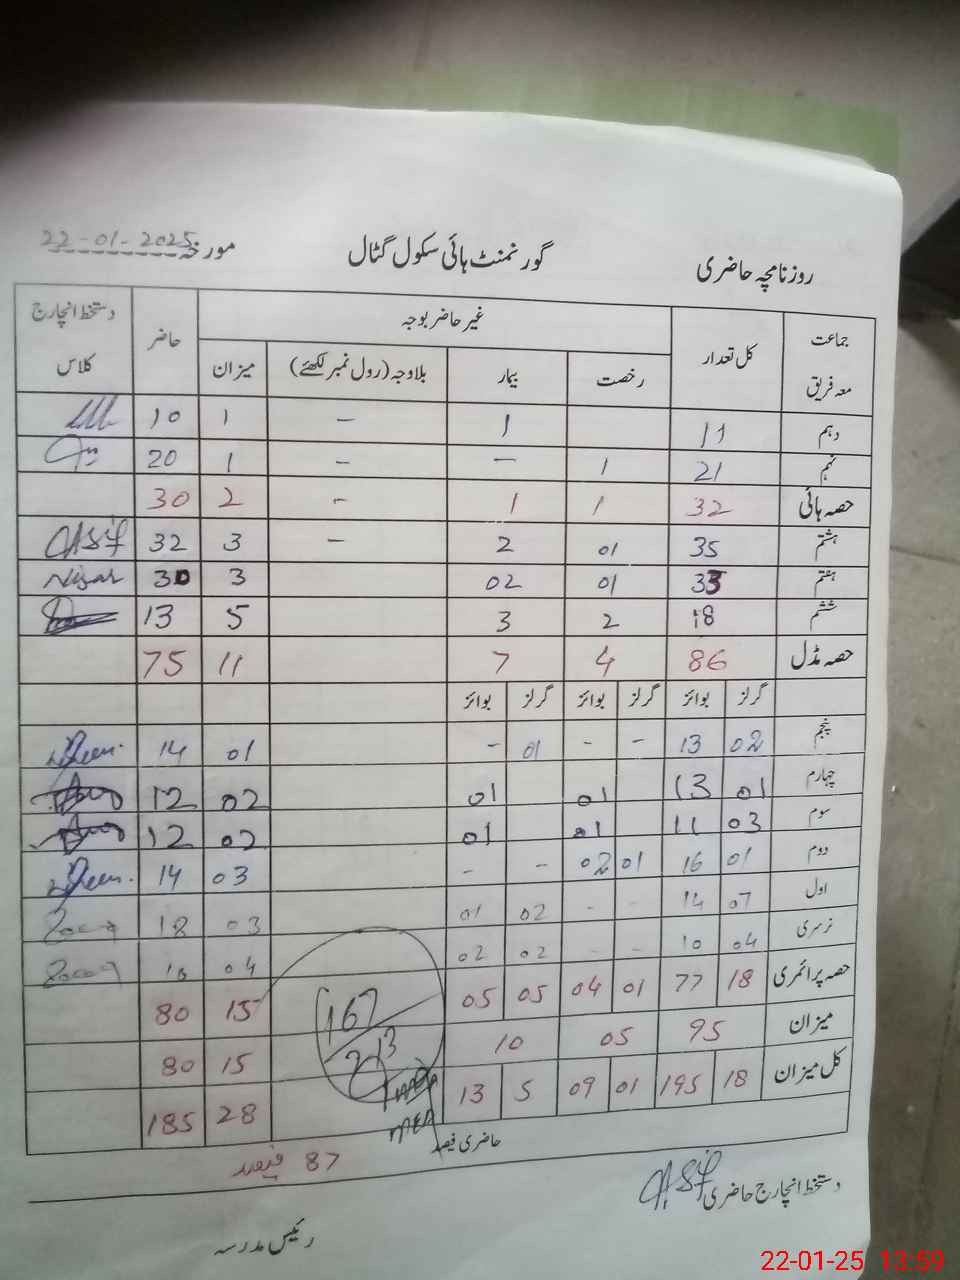 روزنامچہ حاضری گورنمنٹ ہائی سکول گٹال مورخہ 22-01-2025
جماعت معہ فریق کل تعداد غیر حاضر بوجہ حاضر دستخط انچارج کلاس
رخصت بیمار بلاوجہ (رول نمبر لکھئے) میزان
دہم 11 1 - 1 10
نہم 21 1 - - 1 20
حصہ ہائی 32 1 1 - 2 30
ہشتم 35 01 2 - 3 32 Asif
ہفتم 33 01 02 3 30 Nisar
ششم 18 2 3 5 13
حصہ مڈل 86 4 7 11 75
گرلز بوائز گرلز بوائز گرلز بوائز
پنجم 02 13 - - 01 - 01 14
چہارم 01 13 01 01 02 12
سوم 03 11 01 01 02 12
دوم 01 16 01 02 - - 03 14
اول 07 14 - - 02 01 03 18
نرسری 04 10 - - 02 02 04 10
حصہ پرائمری 18 77 01 04 05 05 15 80
میزان 95 05 10 15 80
کل میزان 18 195 01 09 5 13 28 185
167
213
حاضری فیصد 87 فیصد
دستخط انچارج حاضری Asif
رئیس مدرسہ
22-01-25 13:59